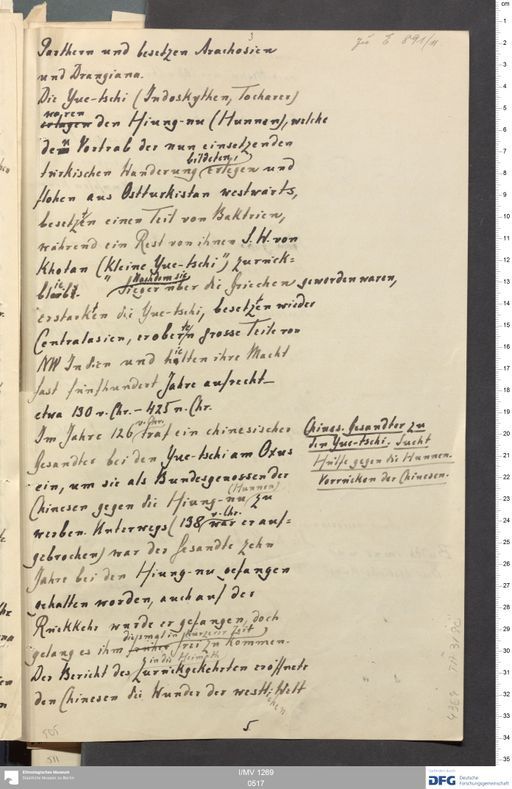 3
zu E 891/11
Parthern und besetzen Arachosien
und Drangiana.
Die Yue-tschi (Indoskythen, Tocharer)
waren
erlagen den Hiung-nu (Hunnen), welche
den Vortrab der nun einsetzenden
bildeten,
türkischen Wanderung erlegen und
flohen aus Ostturkistan westwärts,
besetzten einen Teil von Baktrien,
während ein Rest von ihnen S.W. von
Khotan (Kleine Yue-tschi") zurück-
blieb.
Nachdem sie
Sieger über die Griechen geworden waren,
erstarkten die Yue-tschi, besetzten wieder
Centralasien, eroberten grosse Teile von
NW Indien und hielten ihre Macht
fast fünfhundert Jahre aufrecht
etwa 130 v. Chr. – 425 n. Chr.
v. Chr.
Im Jahre 126 traf ein chinesischer
Gesandter bei den Yue-tschi am Oxus
ein, um sie als Bundesgenossen der
(Hunnen)
Chinesen gegen die Hiung-nu zu
v. Chr.
werben. Unterwegs (138 war er auf-
gebrochen) war der Gesandte zehn
Jahre bei den Hiung-nu gefangen
gehalten worden, auch auf der
Rückkehr wurde er gefangen, doch
diesmal in kurzerer Zeit
gelang es ihm früher frei zu kommen.
in die Heimath
Der Bericht des zurückgekehrten eröffnete
den Chinesen die Wunder der westlichen Welt
Chines. Gesandter zu
den Yue-tschi. Sucht
Hülfe gegen die Hunnen.
Vorrücken der Chinesen.
5
505
511
Ethnologisches Museum
Staatliche Museen zu Berlin
I/MV 1269
0517
Gefördert durch
DFG Deutsche
Forschungsgemeinschaft